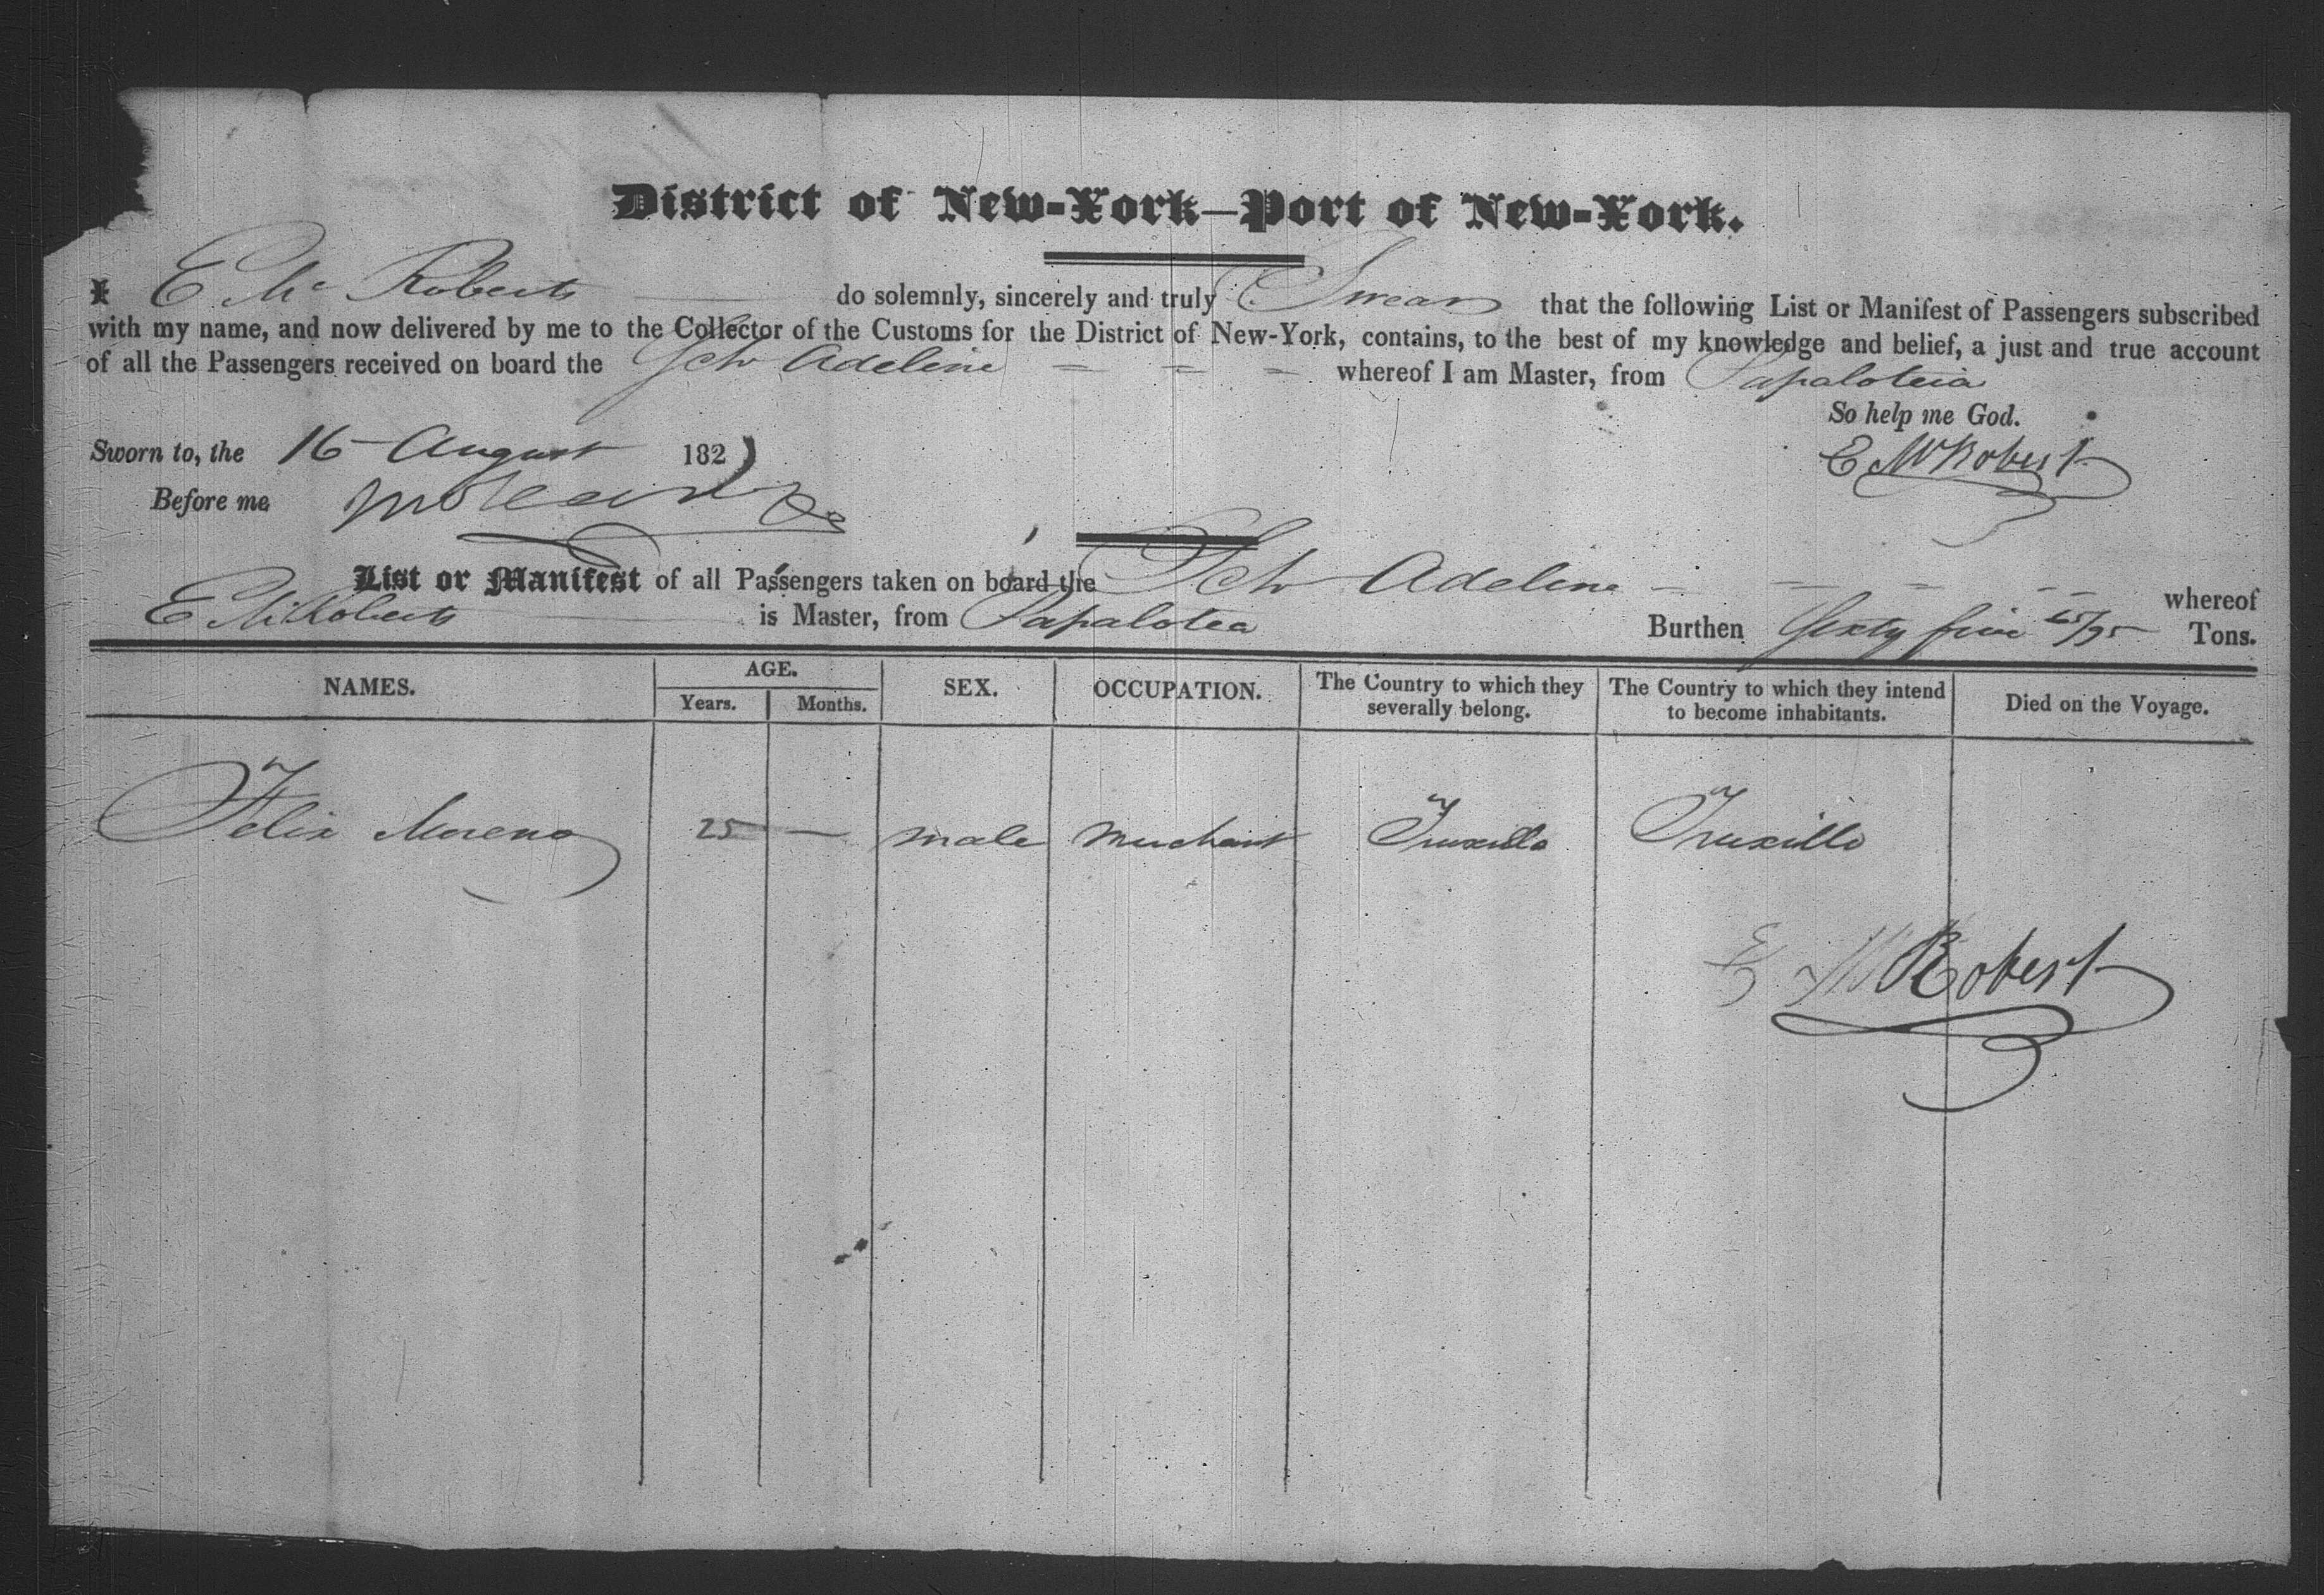 District of New-York—Port of New-York.
I E Mc Roberts do solemnly, sincerely and truly Swear that the following List or Manifest of Passengers subscribed
with my name, and now delivered by me to the Collector of the Customs for the District of New-York, contains, to the best of my knowledge and belief, a just and true account
of all the Passengers received on board the Sch Adeline = = = whereof I am Master, from Papaloteia
So help me God.
Sworn to, the 16 August 182
E McRobert
Before me
List or Manifest of all Passengers taken on board the Sch Adeline whereof
E McRoberts is Master, from Papalotea Burthen Sixty five 65/95 Tons.
NAMES. AGE. SEX. OCCUPATION. The Country to which they severally belong. The Country to which they intend to become inhabitants. Died on the Voyage.
Years. Months.
Felix Moreno 25 — male Merchant Truxillo Truxillo
E McRobert